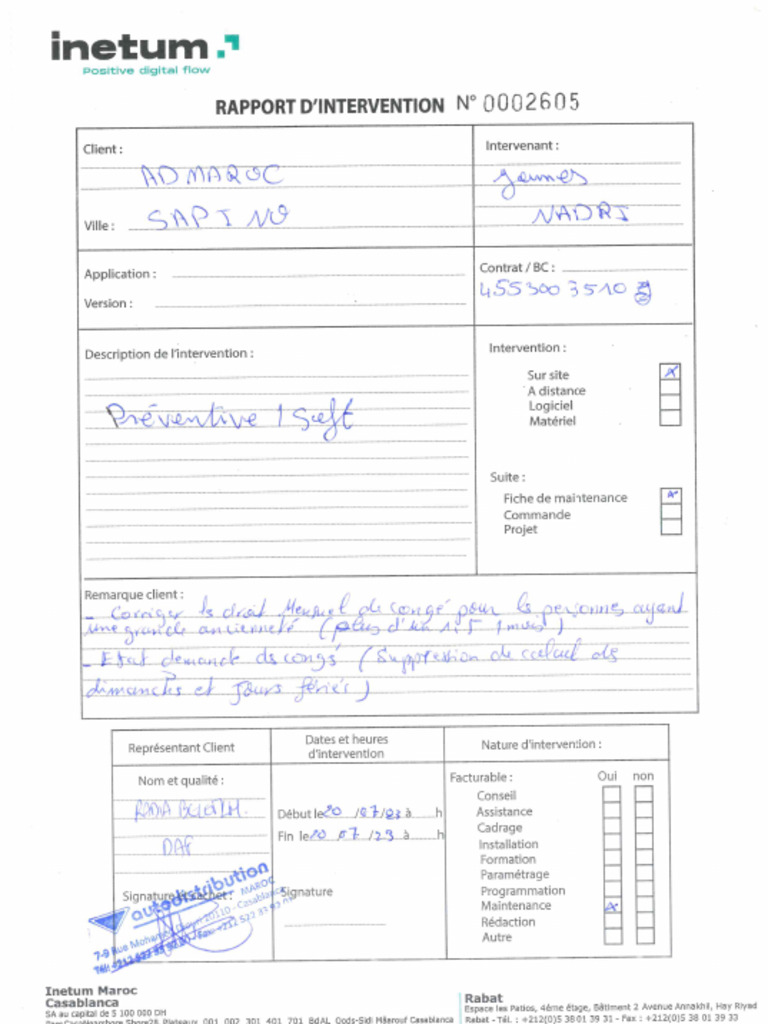 inetum
Positive digital flow
RAPPORT D'INTERVENTION N° 0002605
Client :
AD MAROC
Ville : SAPINO
Intervenant :
NADRI
Application :
Version :
Contrat / BC :
4553003510
Description de l'intervention :
Préventive 1
Intervention :
Sur site
A distance
Logiciel
Matériel
Suite :
Fiche de maintenance
Commande
Projet
Remarque client :
- Corriger le droit Mensuel de congé pour les personnes ayant
une grande ancienneté (plus d'un 1,5 / mois)
- Etat demande de congé (Suppression de calcul des
dimanches et jours fériés)
Représentant Client
Nom et qualité :
DAF
Signature et cachet :
autodistribution
MAROC
20110 - Casablanca
Dates et heures
d'intervention
Début le 20 /07/23 à h
Fin le 20 07 /23 à h
Signature
Nature d'intervention :
Facturable : Oui non
Conseil
Assistance
Cadrage
Installation
Formation
Paramétrage
Programmation
Maintenance
Rédaction
Autre
Inetum Maroc
Casablanca
SA au capital de 5 100 000 DH
Parc Casanearshore Shore28, Plateaux 001, 002, 301, 401, 701, BdAL Qods-Sidi Mâarouf Casablanca
Rabat
Espace les Patios, 4ème étage, Bâtiment 2 Avenue Annakhil, Hay Riyad
Rabat - Tél. : +212(0)5 38 01 39 31 - Fax : +212(0)5 38 01 39 33